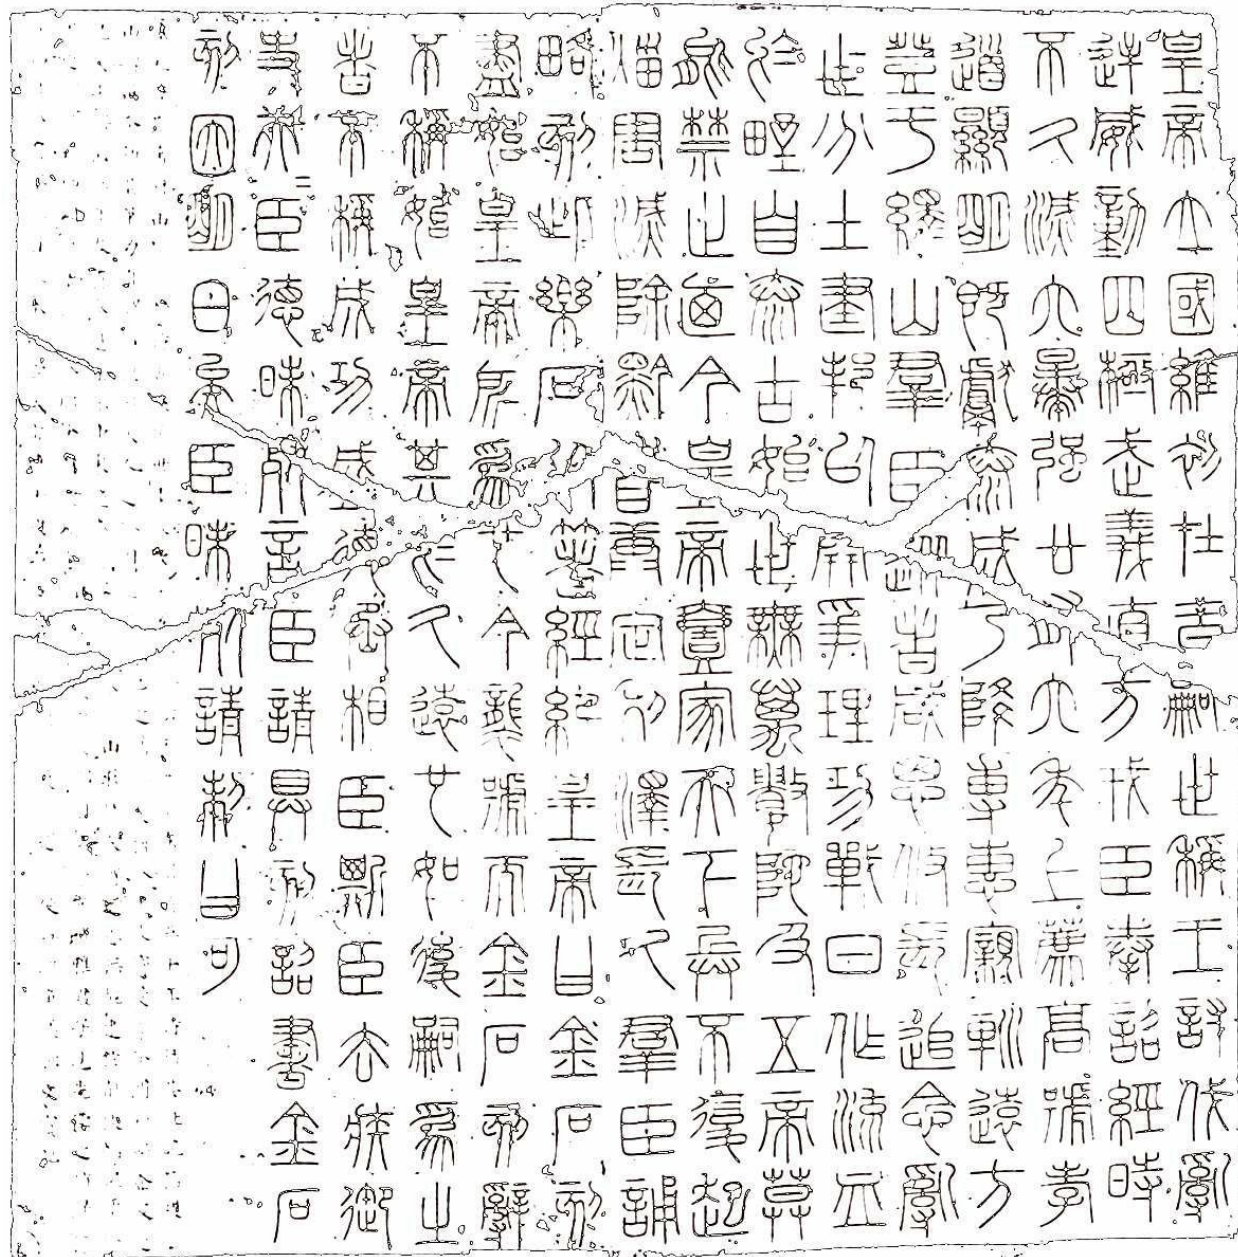 皇帝立國維初在昔嗣世稱王討伐亂
逆威動四極武義直方戎臣奉詔經時
不久滅六暴強廿有六年上薦高號孝
道顯明既獻泰成乃降尃惠寴𨊠遠方
登于繹山群臣從者咸思攸長追念亂
世分土建邦以開爭理功戰日作流血
於野自泰古始世無萬數陀及五帝莫
能禁止迺今皇帝壹家天下兵不復起
烖害滅除黔首康定利澤長久群臣誦
略刻此樂石以著經紀皇帝曰金石刻
盡始皇帝所為也今襲號而金石刻辭
不稱始皇帝其於久遠也如後嗣為之
者不稱成功盛德丞相臣斯臣去疾御
史夫=臣德昧死言臣請具刻詔書金石
刻因明白矣臣昧死請制曰可